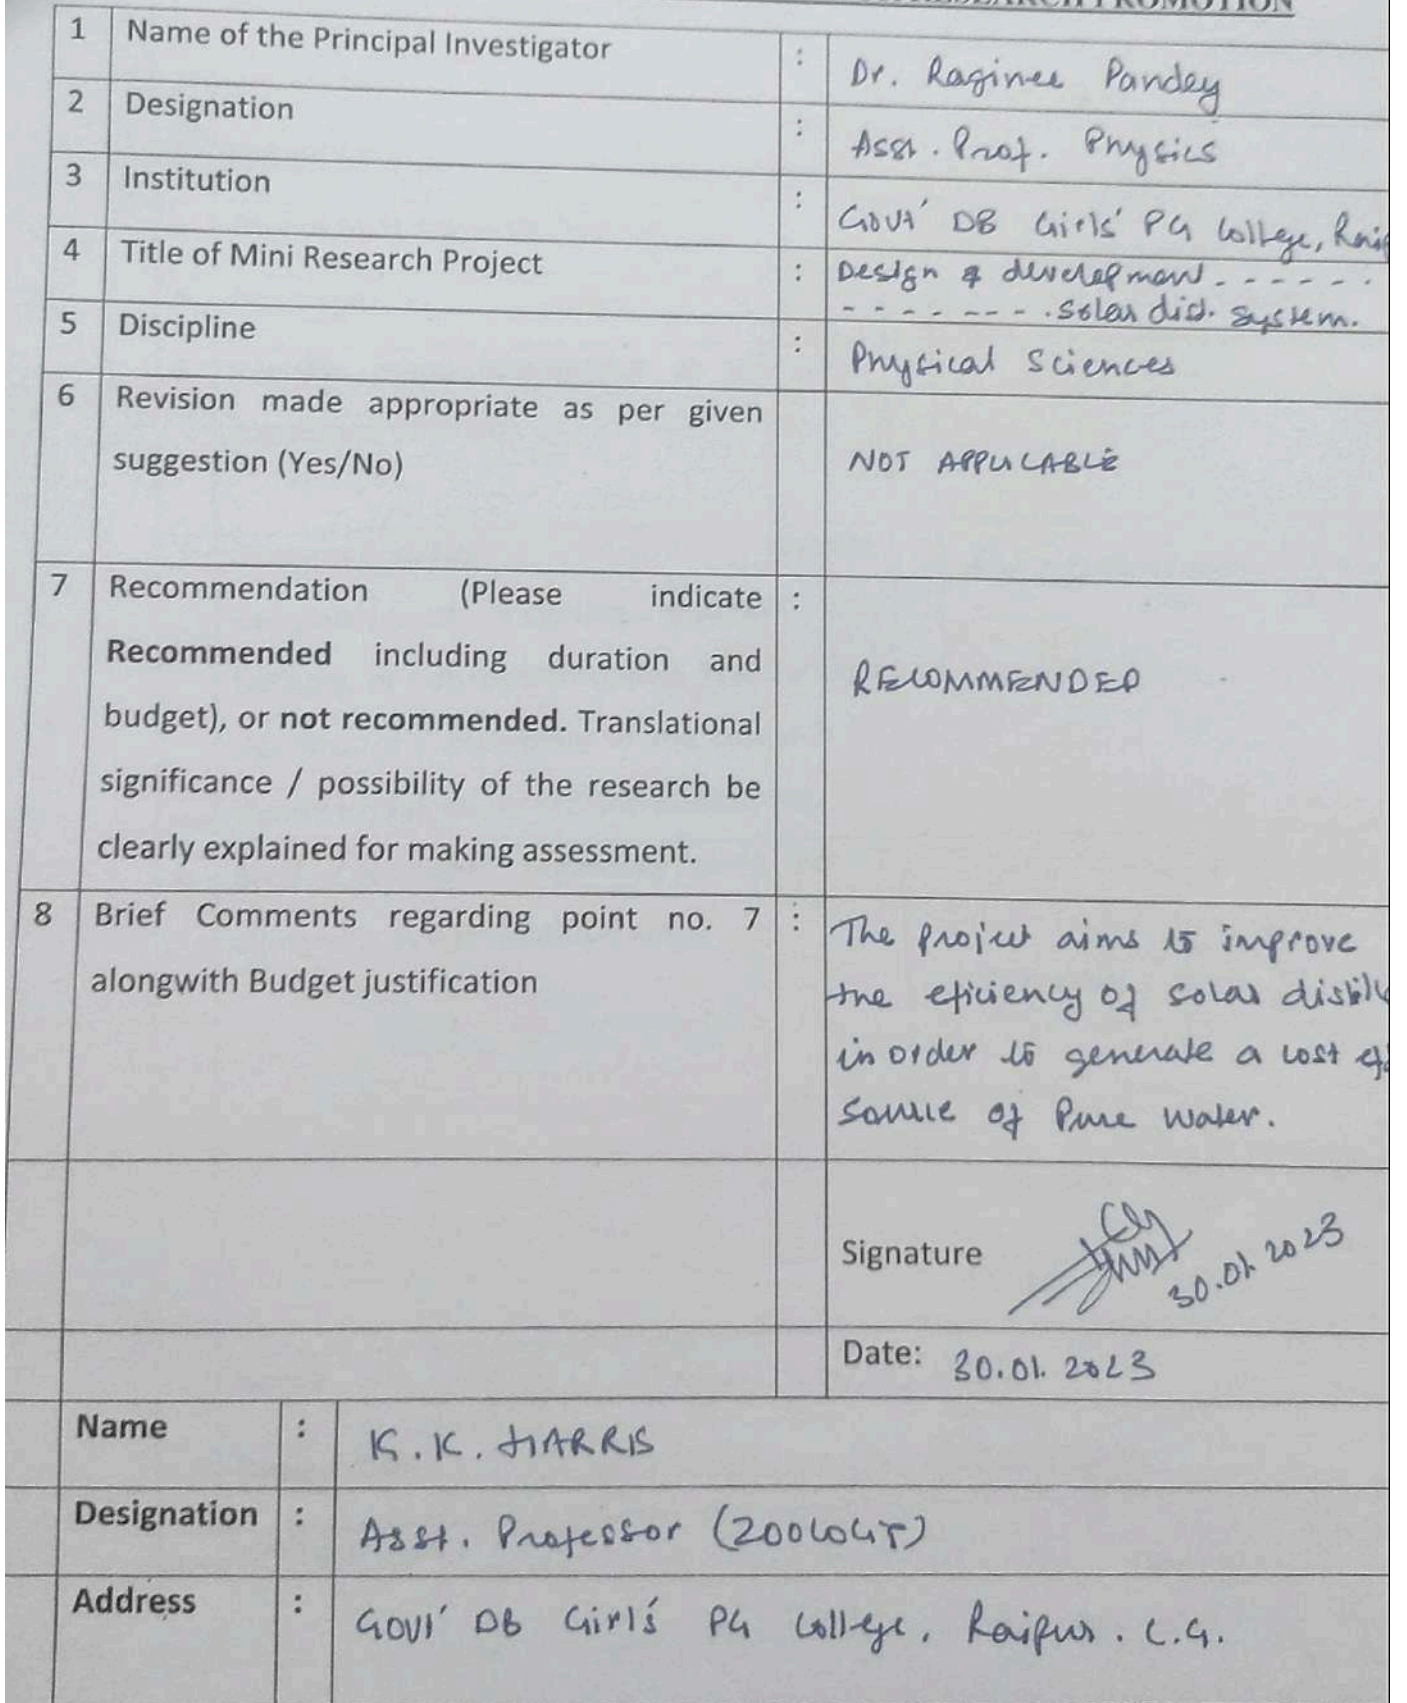 RESEARCH PROMOTION
1 Name of the Principal Investigator : Dr. Raginee Pandey
2 Designation : Asst. Prof. Physics
3 Institution : Govt' DB Girls' PG College,
4 Title of Mini Research Project : Design & development - - - - - -
- - - - - - - - . Solar dist. system.
5 Discipline : Physical Sciences
6 Revision made appropriate as per given
suggestion (Yes/No) NOT APPLICABLE
7 Recommendation (Please indicate :
Recommended including duration and
RECOMMENDED
budget), or not recommended. Translational
significance / possibility of the research be
clearly explained for making assessment.
8 Brief Comments regarding point no. 7 : The project aims to improve
alongwith Budget justification the eficiency of solar
in order to generate a cost
source of Pure water.
Signature 30.01.2023
Date: 30.01.2023
Name : K.K. HARRIS
Designation : Asst. Professor (ZOOLOGY)
Address : Govt' DB Girl's PG College, Raipur. C.G.